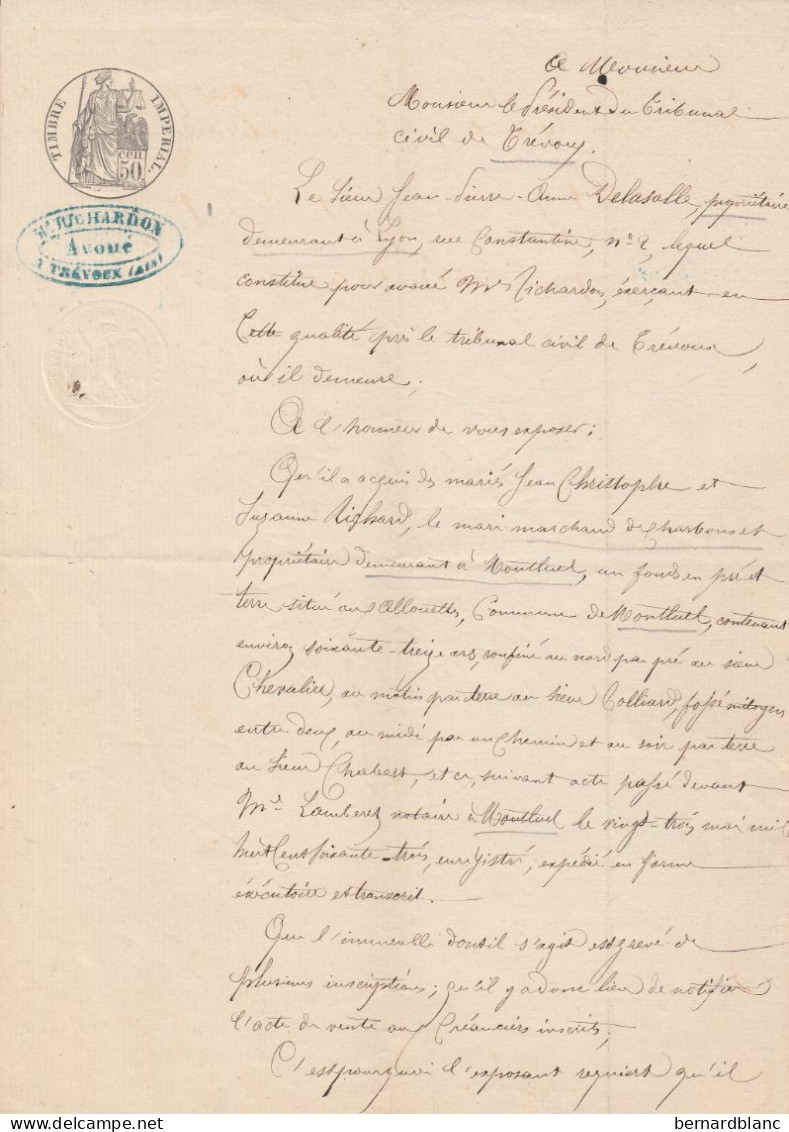 TIMBRE IMPERIAL.
50 cen
Me RICHARDON
Avoué
à TRÉVOUX (Ain)
A Monsieur
Monsieur le Président du Tribunal
civil de Trévoux.
Le Sieur Jean-Pierre-Anne Delasalle, propriétaire
demeurant à Lyon, rue Constantine, n° 2, lequel
constitue pour avoué Me Richardon, exerçant en
Cette qualité près le tribunal civil de Trévoux,
où il demeure,
A l'honneur de vous exposer;
Qu'il a acquis des mariés Jean Christophe et
Suzanne Richard, le mari marchand de charbons et
propriétaire demeurant à Montluel, un fonds en pré et
terre situé aux Allouettes, Commune de Montluel, contenant
environ soixante-treize ars, confiné au nord par pré au sieur
Chevalier, au matin par terre au sieur Colliard, fossé mitoyen
entre deux, au midi par un chemin et au soir par terre
au Sieur Chabert, et ce, suivant acte passé devant
Me Lamberet notaire à Montluel le vingt-trois mai mil
huit cent soixante-trois, enregistré, expédié en forme
exécutoire et transcrit.
Que l'immeuble dont il s'agit est grevé de
plusieurs inscriptions; qu'il y a donc lieu de notifier
l'acte de vente aux Créanciers inscrits;
C'est pourquoi l'exposant requiert qu'il
bernardblanc